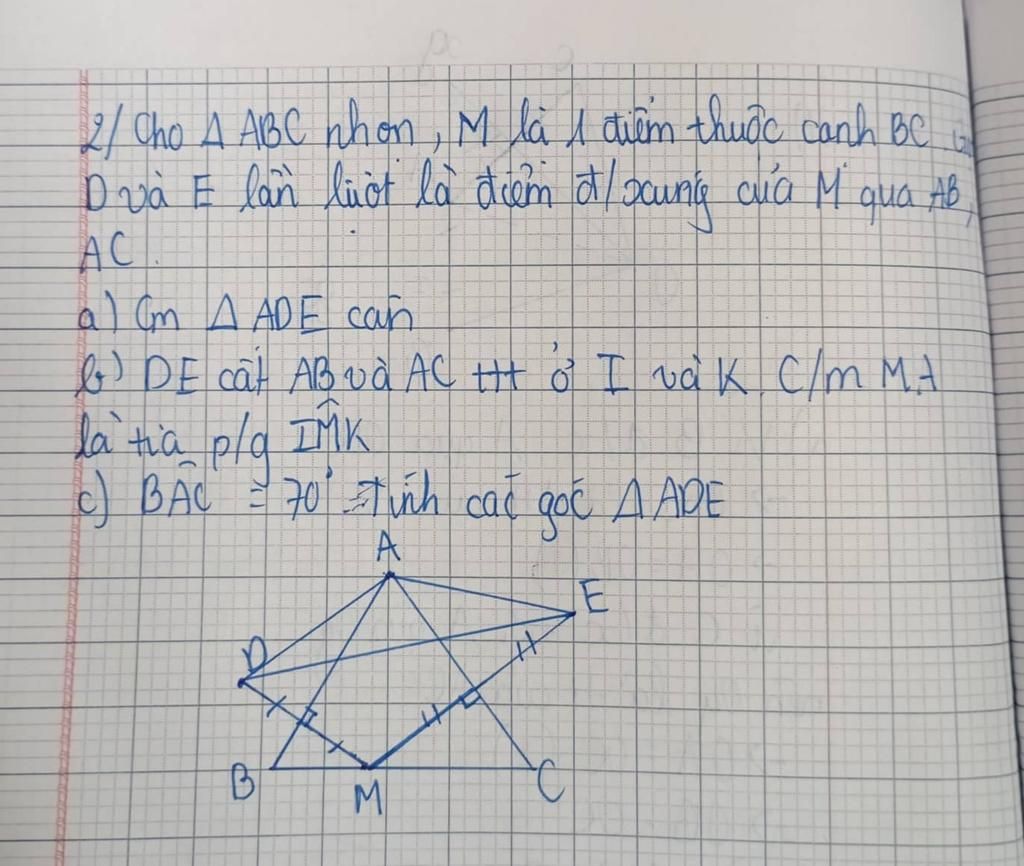 2/ Cho Δ ABC nhọn, M là 1 điểm thuộc cạnh BC
D và E lần lượt là điểm đ/xứng của M qua AB,
AC.
a) Cm Δ ADE cân
b) DE cắt AB và AC ttt ở I và K. C/m MA
là tia p/g IM̂K
c) BÂC = 70° Tính các góc Δ ADE
A
E
D
B
M
C